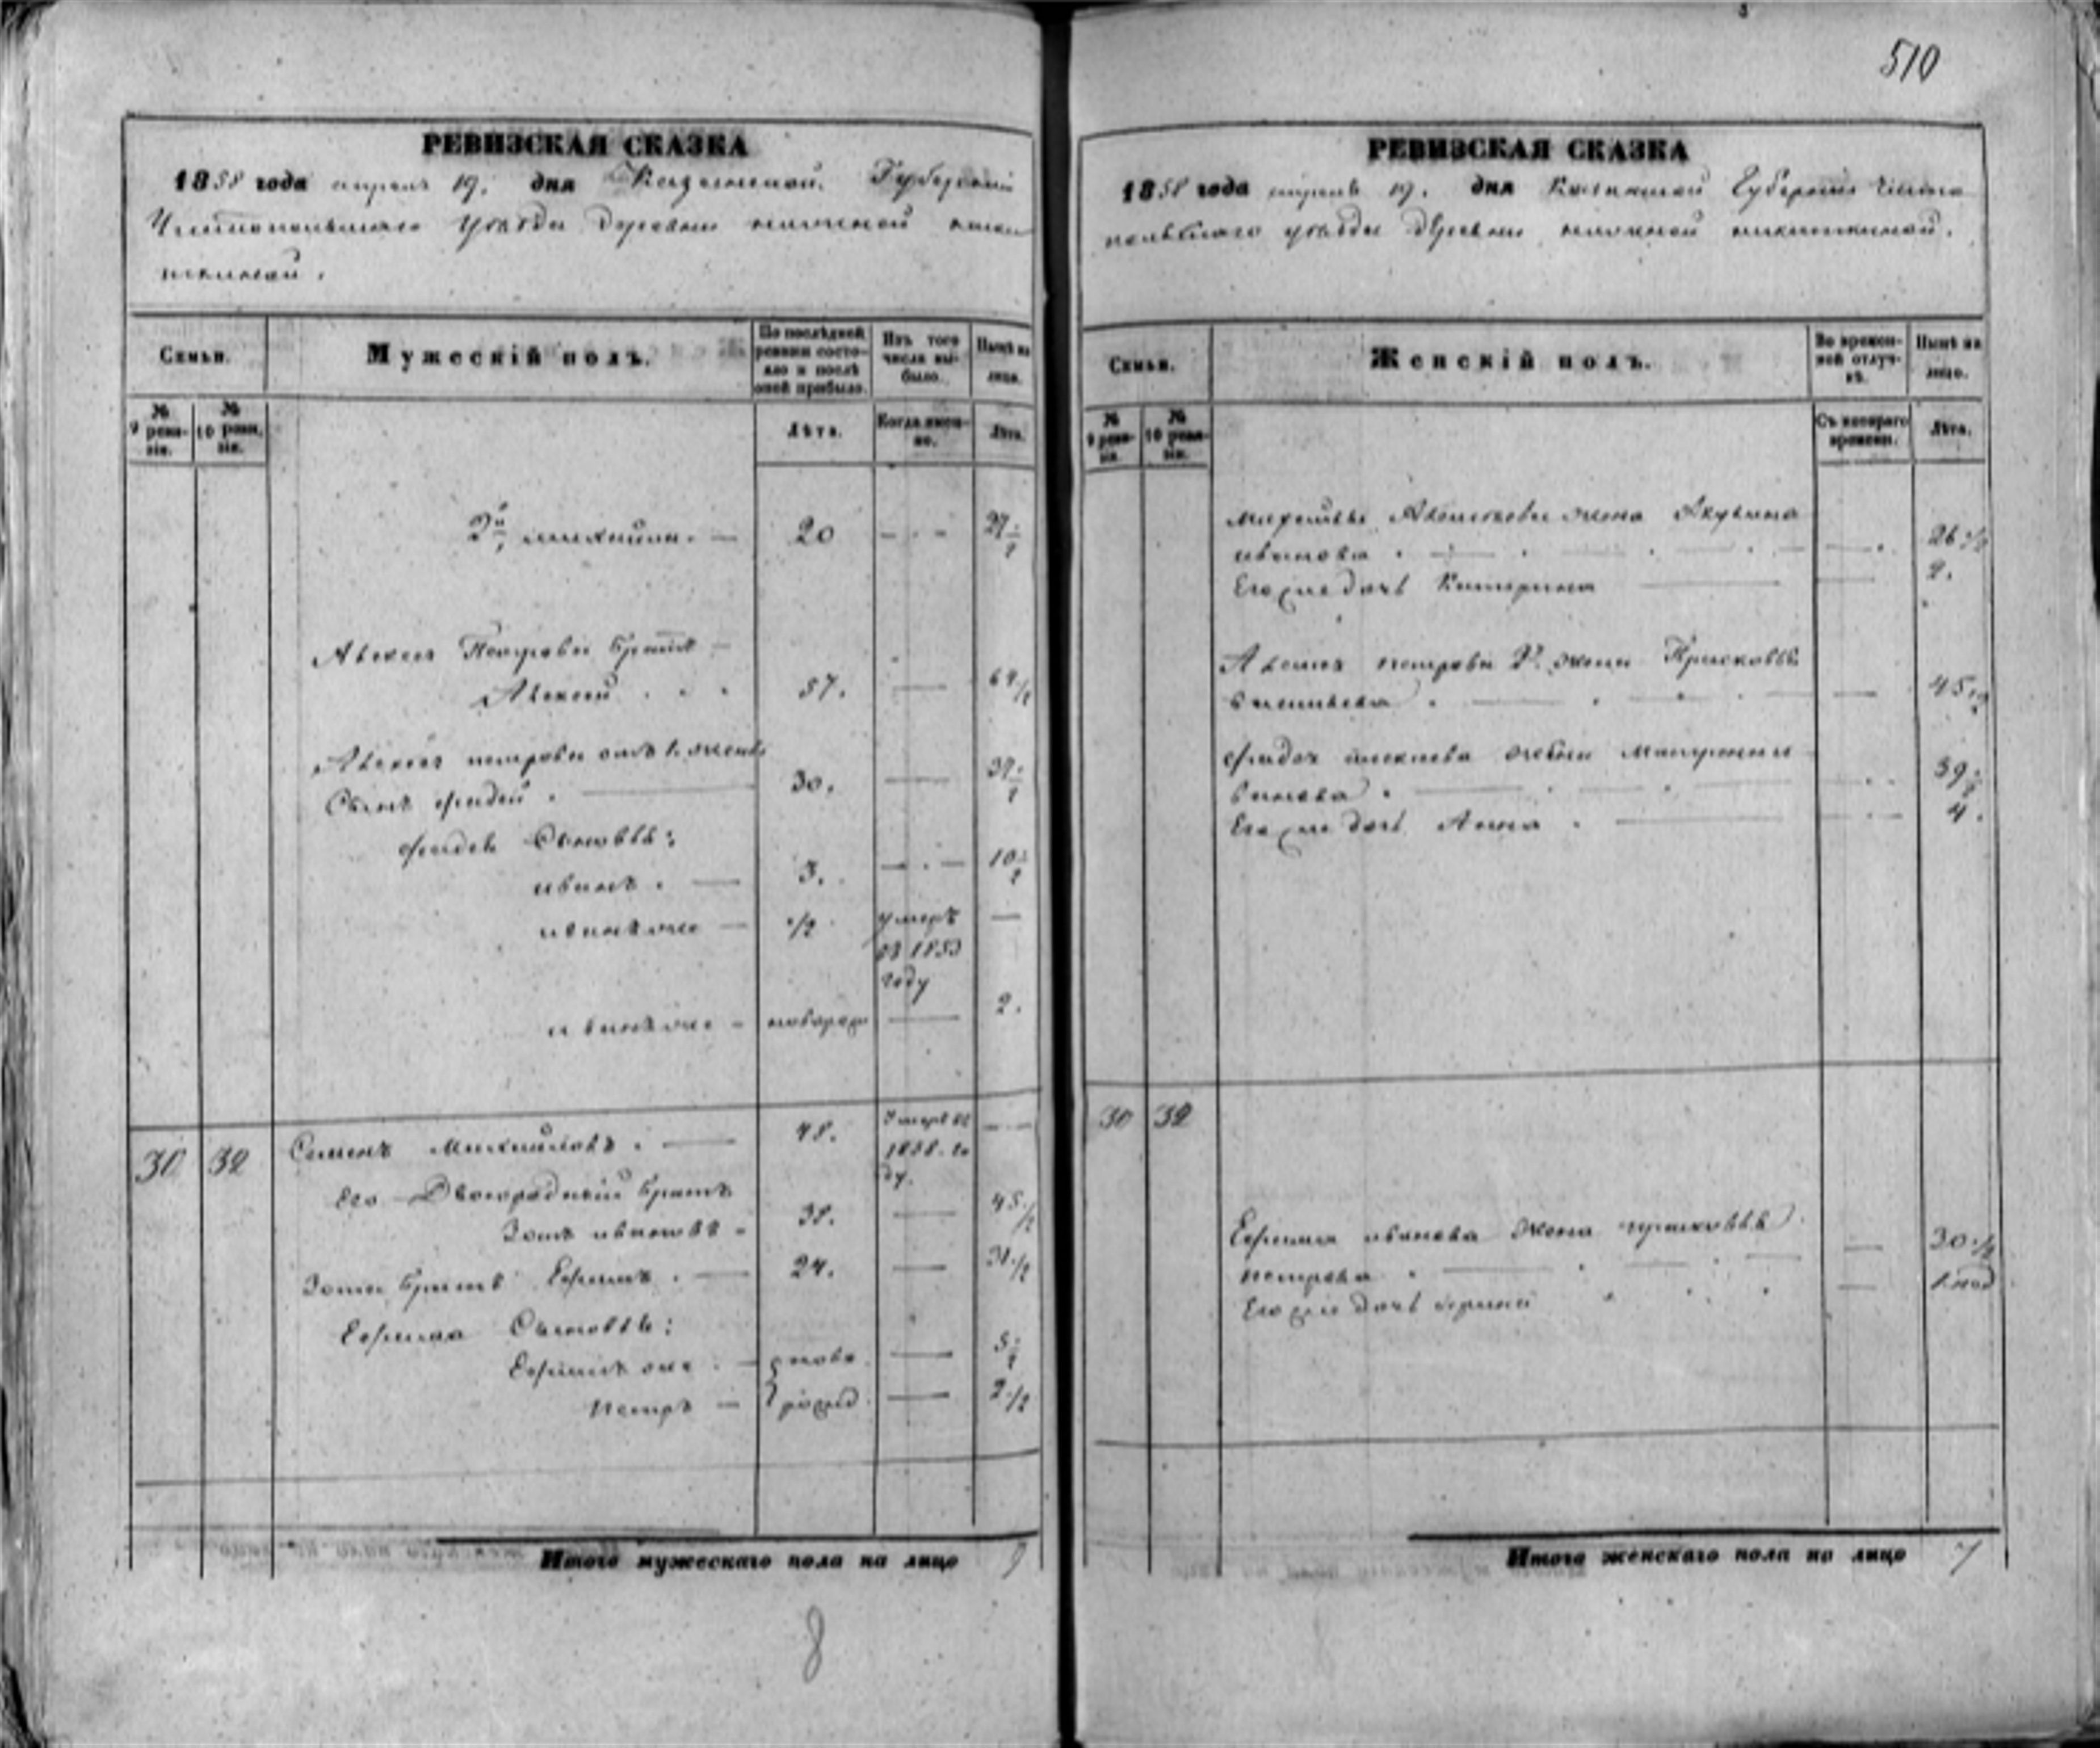 510
РЕВИЗСКАЯ СКАЗКА
1858 года апреля 19. дня Казанской Губернии
Чистопольскаго уезда деревни
РЕВИЗСКАЯ СКАЗКА
1858 года апреля 19. дня Казанской Губернии Чисто
польскаго уезда деревни никиткиной.
Семьи.
Мужескій полъ.
По послѣдней ревизіи состояло и послѣ оной прибыло.
Изъ того числа выбыло.
Нынѣ на лицо.
№ 9 ревизіи.
№ 10 ревизіи.
Лѣта.
Когда именно.
Лѣта.
2й михайла. — 20 — 27 1/2
Алексея Петрова братъ —
Алексей 57. — 64 1/2
Алексея петрова отъ 1. жены
Сынъ фадей . 30. — 37 1/2
фадея Сыновья:
иванъ . — 3. — 10 1/2
иванъ же — 1/2 умеръ —
въ 1853
году
иванъ же - новорож — 2.
30 32 Семенъ Михайловъ . — 48. Умеръ въ —
1858. го
ду.
Его Двоюродный братъ
Зотъ ивановъ - 38. — 45 1/2
Зота братъ Ефимъ . — 24. — 31 1/2
Ефима Сыновья:
Ефимъ же . — нова — 5 1/2
петръ — рожд — 2 1/2
Итого мужескаго пола на лицо 9
8
Семьи.
Женскій полъ.
Во временной отлучкѣ.
Нынѣ на лицо.
№ 9 ревизіи.
№ 10 ревизіи.
Съ котораго времени.
Лѣта.
Алексеева жена Акулина
иванова . — 26 1/2
Его же дочь Катерина — 2.
Алексея петрова 2. жена Прасковья
васильева . — 45 1/2
фадея алексеева жена Матрена
 — 39 1/2
Его же дочь Анна . — 4.
30 32
Ефима иванова жена прасковья
петрова . — 30 1/2
Его же дочь ирина — 1. год
Итого женскаго пола на лицо 7